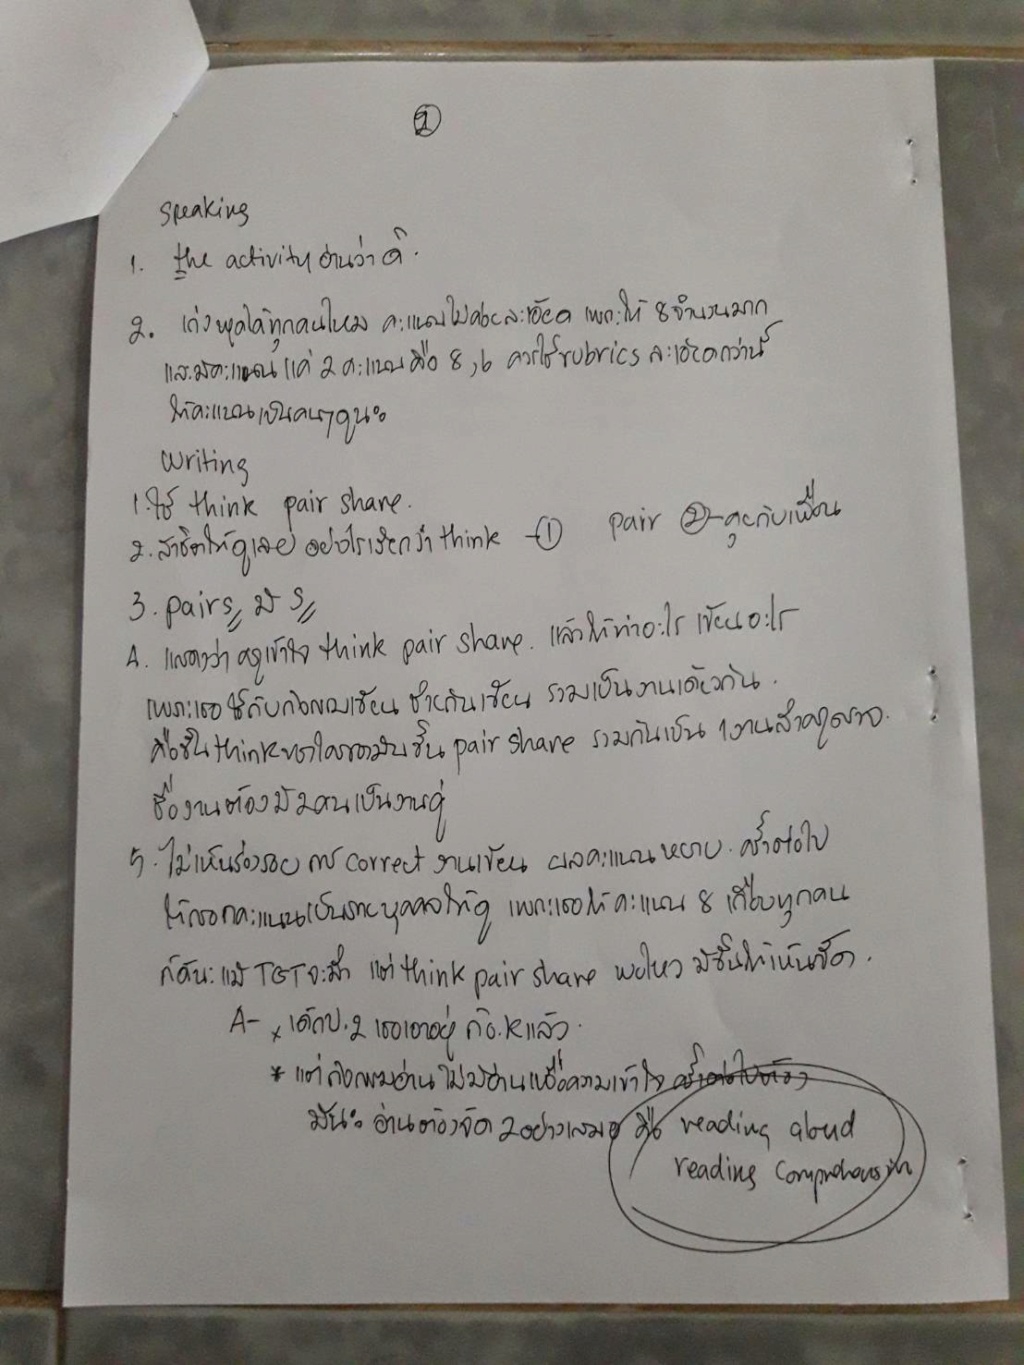 2
Speaking
1. the activity อ่านว่า ดิ.
2. เก่ง พูดได้ทุกคนไหม คะแนนไม่ค่อยละเอียด เพราะให้ 8 จำนวนมาก
และมีคะแนนแค่ 2 คะแนนคือ 8,6 ควรใช้ rubrics ละเอียดกว่านี้
ให้คะแนนเป็นคนๆดูนะ
Writing
1. ใช้ think pair share.
2. สาธิตให้ดูเลย อย่างไรเรียกว่า think -① pair ②-คุยกับเพื่อน
3. pairs มี s
4. แสดงว่า ครูเข้าใจ think pair share. แล้วให้ทำอะไร เขียนอะไร
เพราะเธอใช้กับกิจกรรมเขียน ช่วยกันเขียน รวมเป็นงานเดียวกัน.
คือขั้น think ของใครของมัน ขั้น pair share รวมกันเป็น 1 งานสำคัญ
ชื่องานต้องมี 2 คนเป็นงานคู่
5. ไม่เห็นร่องรอย การ correct งานเขียน ผลคะแนนหยาบ. ครั้งต่อไป
ให้กรอกคะแนนเป็นรายบุคคลให้ดู เพราะเธอให้ คะแนน 8 เกือบทุกคน
แม้ TGT แต่ think pair share มีชิ้นให้เห็นชัด.
A- x เด็กป.2 เธอเอาอยู่ ก็o.kแล้ว.
* แต่ กิจกรรมอ่าน ไม่มีอ่านเพื่อความเข้าใจ ครั้งต่อไปต้อง
มีนะ อ่านต้องจัด 2 อย่างเสมอ คือ reading aloud
reading comprehension